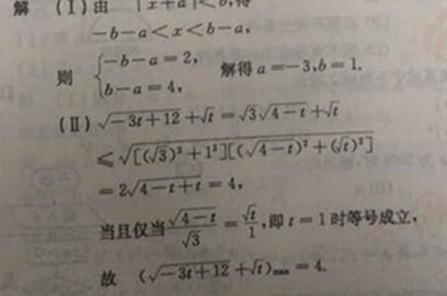 解 (Ⅰ)由 |x+a|<b,得
-b-a<x<b-a,
则 {-b-a=2, b-a=4, 解得 a=-3,b=1.
(Ⅱ) √(-3t+12)+√t=√3√(4-t)+√t
≤√{[(√3)²+1²][(√(4-t))²+(√t)²]}
=2√(4-t+t)=4,
当且仅当 √(4-t)/√3=√t/1,即 t=1 时等号成立,
故 (√(-3t+12)+√t)max=4.